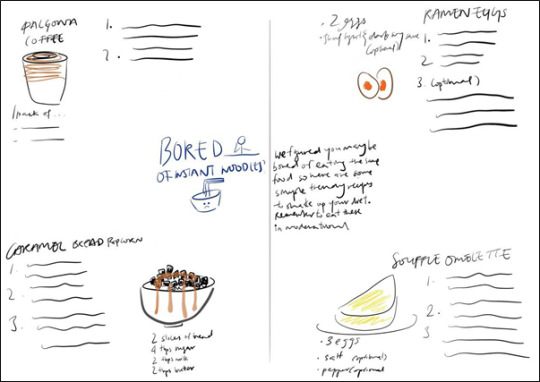 DALGONA
COFFEE
1.
2.
1 pack of...
2 eggs
(optional)
RAMEN EGGS
1.
2.
3. (optional)
BORED
OF INSTANT NOODLES?
We figured you may be
bored of eating the same
food so here are some
simple trendy recipes
to shake up your diet.
Remember to eat these
in moderation!
CARAMEL BREAD POPCORN
1.
2.
3.
2 slices of bread
4 tbps sugar
2 tbps milk
2 tbps butter
SOUFFLE OMELETTE
1.
2.
3
3 eggs
salt (optional)
pepper (optional)